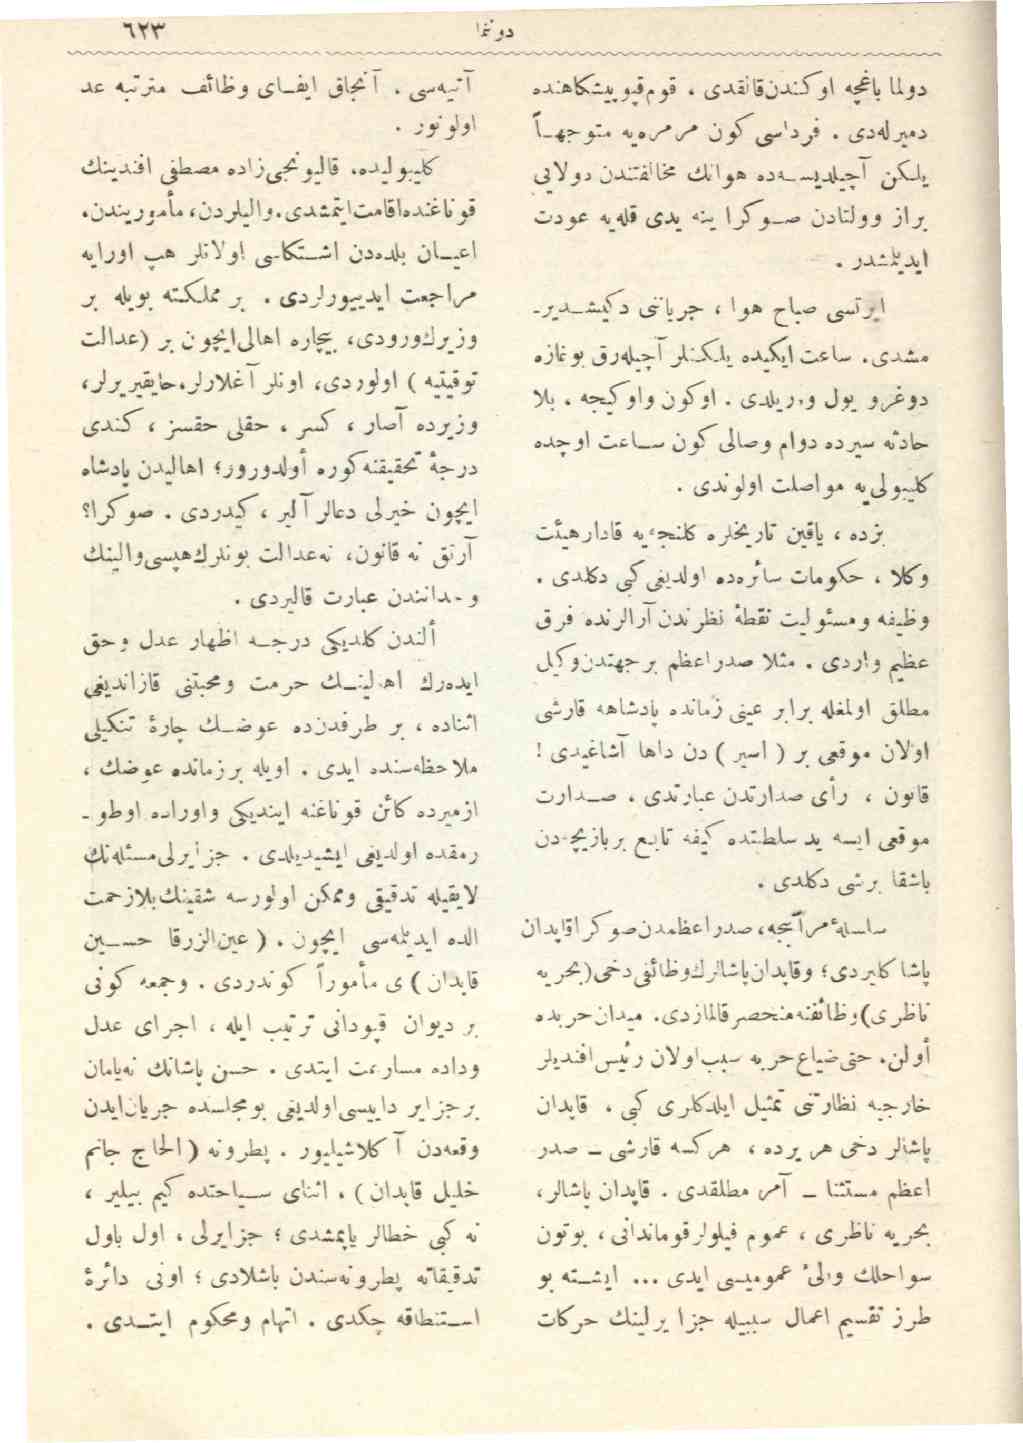 دوننما
٦٢٣
دولما باغچه اوكندن قالقدی ، قوم قپو پیشكاهنده
دمیرله‌دی . فرداسی كون مرمره‌یه متوجهاً
یلكن آچیلدیسه‌ده هوانك مخالفتندن دولایی
براز وولتادن صوكرا ینه یدی قله‌یه عودت
ایدیلمشدر .
ایرتسی صباح هوا ، جریاننی دكیشدیر-
مشدی . ساعت ایكیده یلكنلر آچیله‌رق بوغازه
دوغرو یول ویریلدی . اوكون واو كیجه ، بلا
حادثه سیرده دوام وصالی كون ساعت اوچده
كلیبولی‌یه مواصلت اولوندی .
بزده ، یاقین تاریخلره كلنجه‌یه قادار هیئت
وكلا ، حكومات سائره‌ده اولدیغی كبی دكلدی .
وظیفه ومسئولیت نقطهٔ نظرندن آرالرنده فرق
عظیم واردی . مثلا صدراعظم برجهتدن وكیل
مطلق اولمغله برابر عینی زمانده پادشاهه قارشی
اولان موقعی بر ( اسیر ) دن داها آشاغیدی !
قانون ، رأی صدارتدن عبارتدی . صدارت
موقعی ایسه ید سلطنتده كیفه تابع بربازیچه‌دن
باشقا برشی دكلدی .
سلسلهٔ مراتبجه، صدراعظمدن صوكرا قاپدان
پاشا كلیردی؛ وقاپدان پاشالرك وظائفی دخی (بحریه
ناظری) وظائفنه منحصر قالمازدی. میدان حربده
أولن، حتی ضیاع حربه سبب اولان رئیس افندیلر
خارجیه نظارتنی تمثیل ایلدكلری كبی ، قاپدان
پاشالر دخی هر یرده ، هركسه قارشی — صدر
اعظم مستثنا — آمر مطلقدی . قاپدان پاشالر،
بحریه ناظری ، عموم فیلولر قوماندانی ، بوتون
سواحلك والیٔ عمومیسی ایدی ... ایشته بو
طرز تقسیم اعمال سببیله جزایرلینك حركات
آتیه‌سی . آنجاق ایفای وظائف مترتبه عد
اولونور .
كلیبولیده، قالیونجی‌زاده مصطفی افندینك
قوناغنده اقامت ایتمشدی. والیلردن، مأموریندن،
اعیان بلده‌دن اشتكاسی اولانلر هپ اورایه
مراجعت ایدییورلردی . بر مملكته بویله بر
وزیرك ورودی، بیچاره اهالی ایچون بر (عدالت
توقیتیه ) اولوردی، اونلر آغلارلر، حایقیریرلر،
وزیرده آصار ، كسر ، حقلی حقسز ، كندی
درجهٔ تحقیقنه كوره أولدورور؛ اهالیدن پادشاه
ایچون خیرلی دعالر آلیر ، كیدردی . صوكرا؟
آرتق نه قانون، نه عدالت بونلرك هپسی والینك
وجدانندن عبارت قالیردی .
ألندن كلدیكی درجه اظهار عدل وحق
ایده‌رك اهالینك حرمت ومحبتنی قازاندیغی
اثناده ، بر طرفدن‌ده عوضك چارهٔ تنكیلی
ملاحظه‌سنده ایدی . اویله برزمانده عوضك ،
ازمیرده كائن قوناغنه ایندیكی واوراده اوطو-
رمقده اولدیغی ایشیدیلدی . جزایرلی مسئله‌نك
لایقیله تدقیقی وممكن اولورسه شقینك بلازحمت
الده ایدیلمه‌سی ایچون . ( عین‌الزرقا حسین
قاپدان ) ی مأموراً كوندردی . وجمعه كونی
بر دیوان قپودانی ترتیب ایله ، اجرای عدل
وداده مسارعت ایتدی . حسن پاشانك نه‌یامان
برجزایر داییسی اولدیغی بومجلسده جریان ایدن
وقعه‌دن آكلاشیلیور . پطرونه ( الحاج جانم
خلیل قاپدان ) ، اثنای سیاحتده كیم بیلیر ،
نه كبی خطالر یاپمشدی ؛ جزایرلی ، اول باول
تدقیقاته پطرونه‌سندن باشلادی ؛ اونی دائرهٔ
استنطاقه چكدی . اتهام ومحكوم ایتدی .